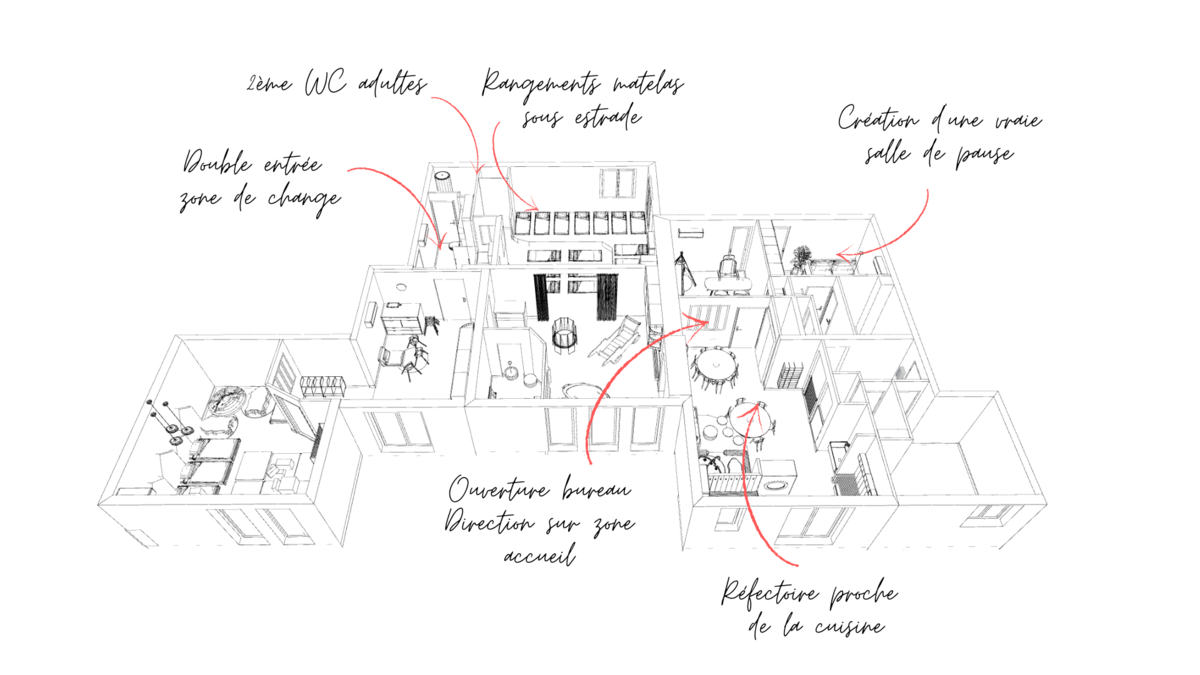 2ème WC adultes
Rangements matelas
sous estrade
Création d'une vraie
salle de pause
Double entrée
zone de change
Ouverture bureau
Direction sur zone
accueil
Réfectoire proche
de la cuisine